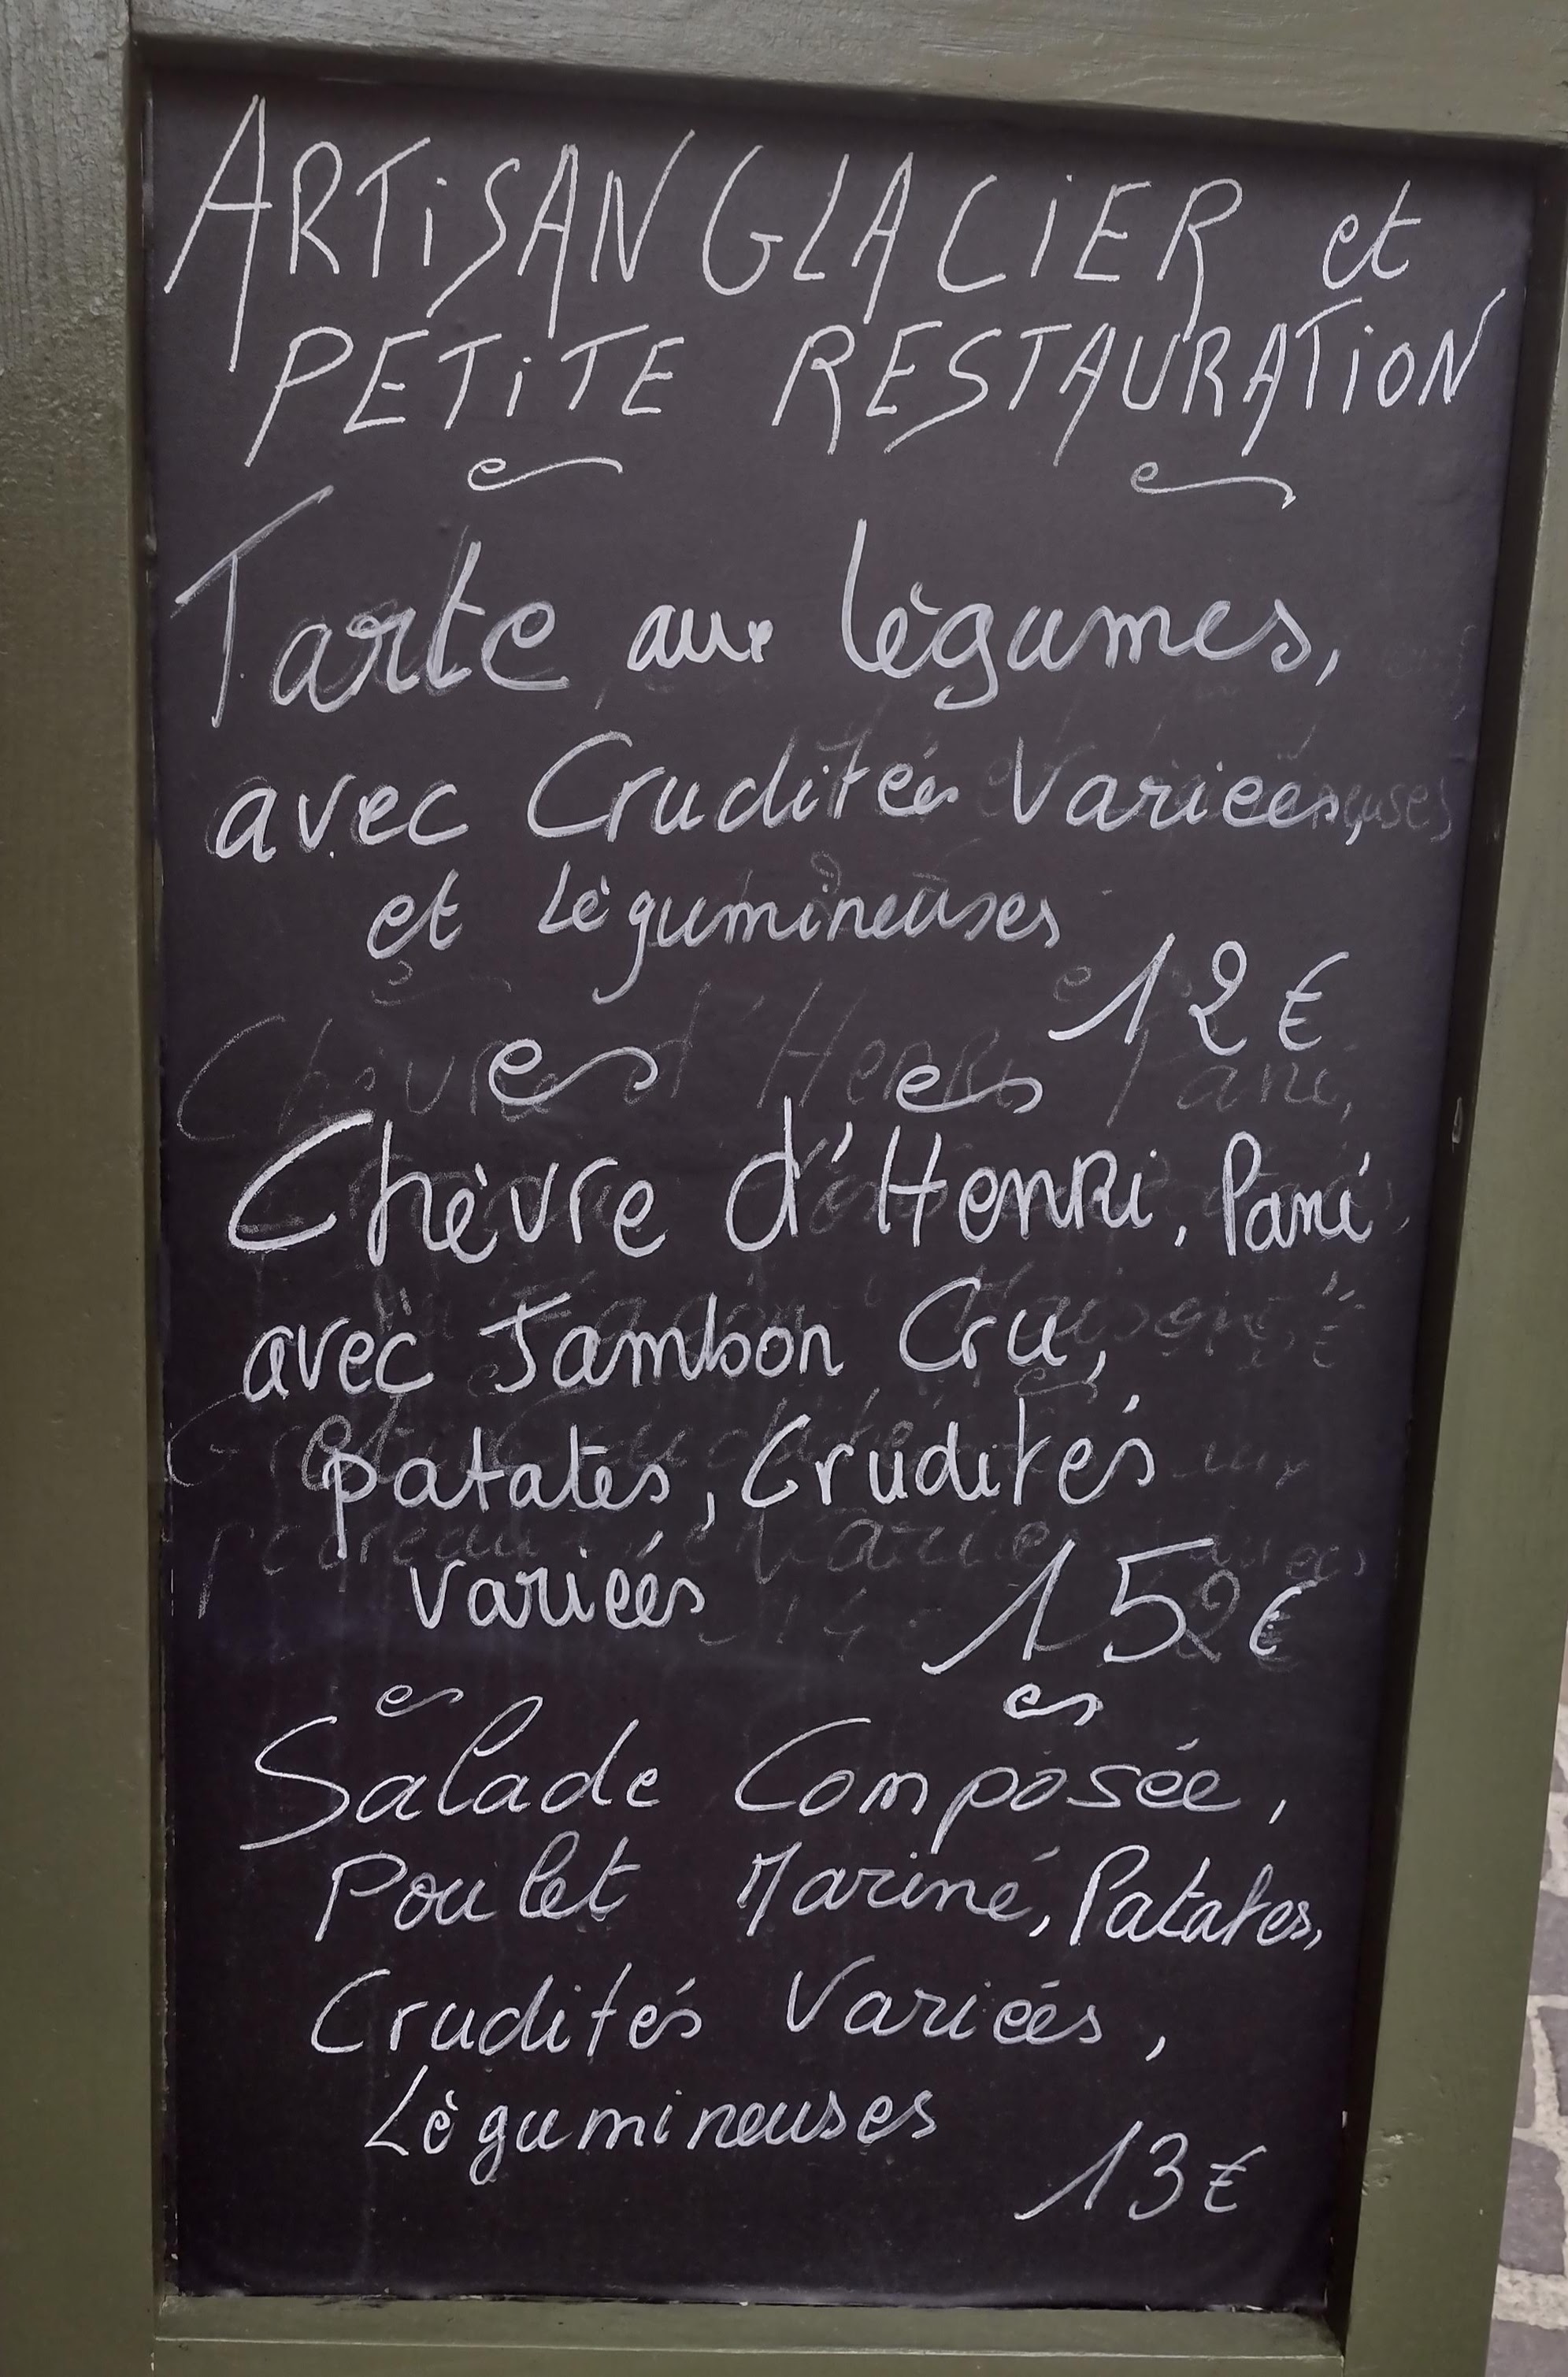 ARTiSAN GLACiER et
PETiTE RESTAURATiON
Tarte aux légumes,
avec Crudités Variées,
et Légumineuses
12 €
Chèvre d'Henri, Pané
avec Jambon Cru,
patates, Crudités
variées 15 €
Salade Composée,
Poulet Mariné, Patates,
Crudités Variées,
Légumineuses
13 €